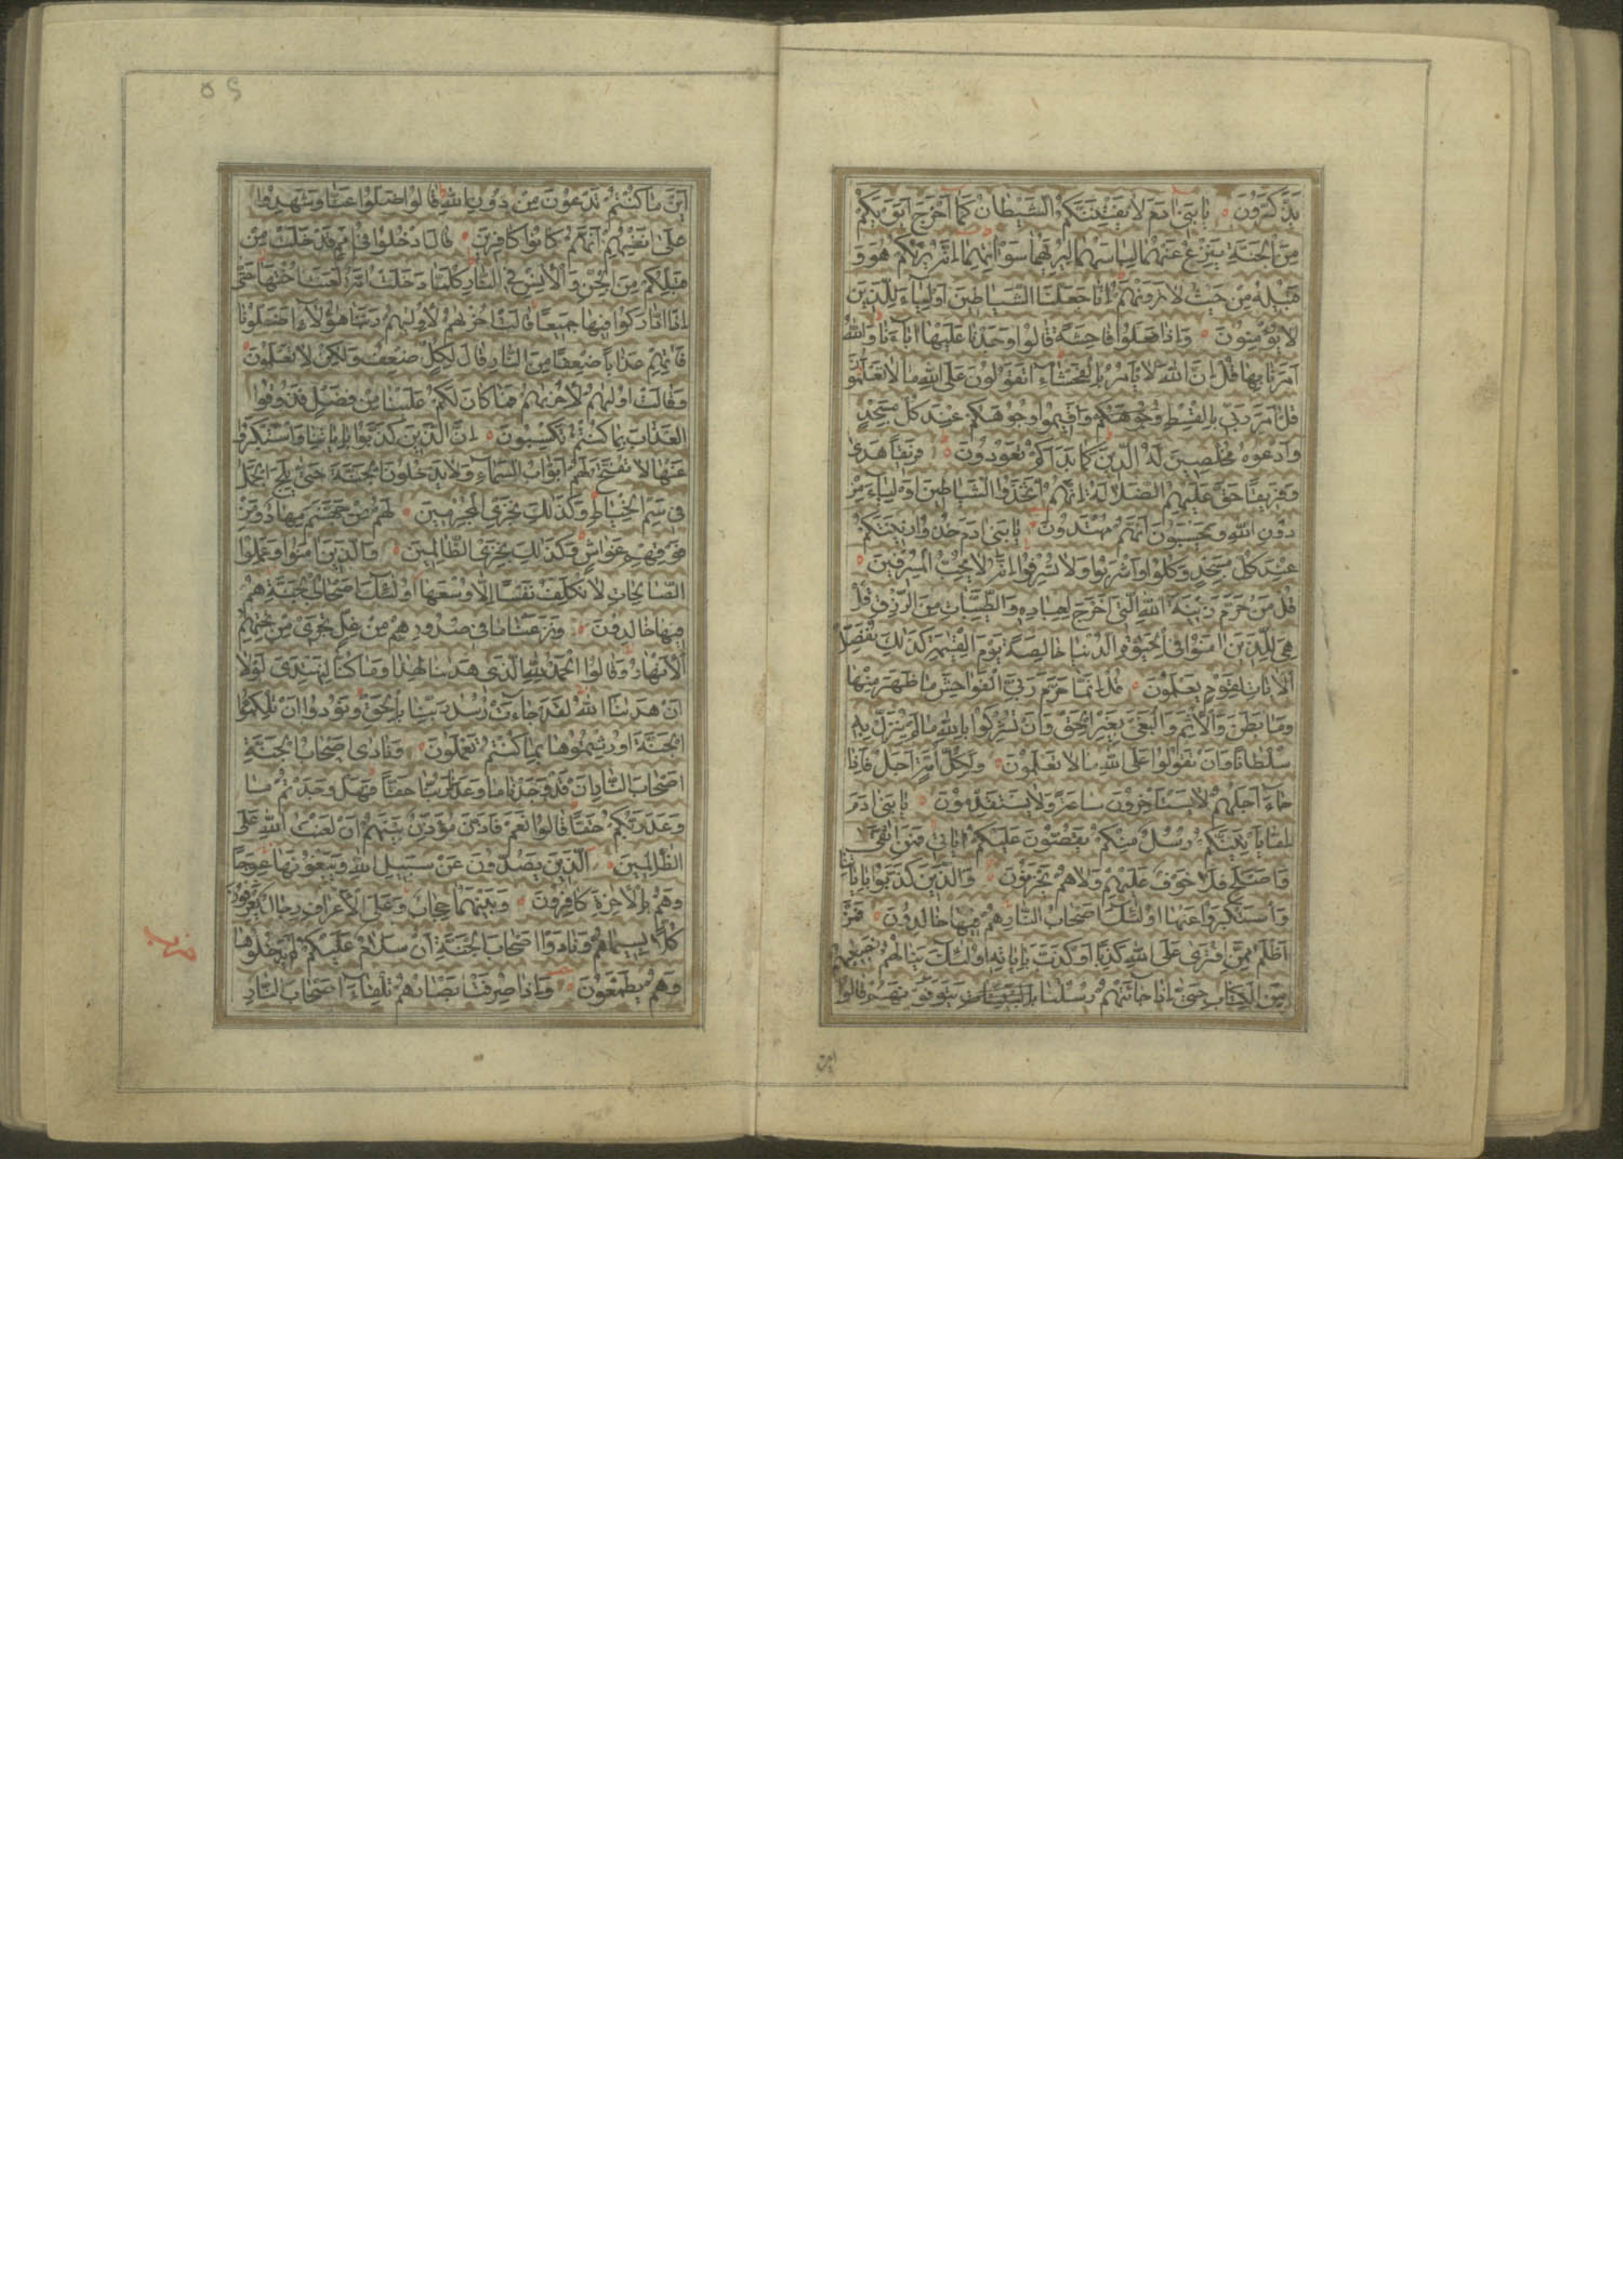 يَذَّكَّرُونَ يَا بَنِي آدَمَ لَا يَفْتِنَنَّكُمُ الشَّيْطَانُ كَمَا أَخْرَجَ أَبَوَيْكُمْ
مِنَ الْجَنَّةِ يَنْزِعُ عَنْهُمَا لِبَاسَهُمَا لِيُرِيَهُمَا سَوْآتِهِمَا إِنَّهُ يَرَاكُمْ هُوَ وَ
قَبِيلُهُ مِنْ حَيْثُ لَا تَرَوْنَهُمْ إِنَّا جَعَلْنَا الشَّيَاطِينَ أَوْلِيَاءَ لِلَّذِينَ
لَا يُؤْمِنُونَ وَإِذَا فَعَلُوا فَاحِشَةً قَالُوا وَجَدْنَا عَلَيْهَا آبَاءَنَا وَاللَّهُ
أَمَرَنَا بِهَا قُلْ إِنَّ اللَّهَ لَا يَأْمُرُ بِالْفَحْشَاءِ أَتَقُولُونَ عَلَى اللَّهِ مَا لَا تَعْلَمُونَ
قُلْ أَمَرَ رَبِّي بِالْقِسْطِ وُجُوهَكُمْ وَأَقِيمُوا وُجُوهَكُمْ عِنْدَ كُلِّ مَسْجِدٍ
وَادْعُوهُ مُخْلِصِينَ لَهُ الدِّينَ كَمَا بَدَأَكُمْ تَعُودُونَ فَرِيقًا هَدَى
وَفَرِيقًا حَقَّ عَلَيْهِمُ الضَّلَالَةُ إِنَّهُمُ اتَّخَذُوا الشَّيَاطِينَ أَوْلِيَاءَ مِنْ
دُونِ اللَّهِ وَيَحْسَبُونَ أَنَّهُمْ مُهْتَدُونَ يَا بَنِي آدَمَ خُذُوا زِينَتَكُمْ
عِنْدَ كُلِّ مَسْجِدٍ وَكُلُوا وَاشْرَبُوا وَلَا تُسْرِفُوا إِنَّهُ لَا يُحِبُّ الْمُسْرِفِينَ
قُلْ مَنْ حَرَّمَ زِينَةَ اللَّهِ الَّتِي أَخْرَجَ لِعِبَادِهِ وَالطَّيِّبَاتِ مِنَ الرِّزْقِ قُلْ
هِيَ لِلَّذِينَ آمَنُوا فِي الْحَيٰوةِ الدُّنْيَا خَالِصَةً يَوْمَ الْقِيٰمَةِ كَذَلِكَ نُفَصِّلُ
الْآيَاتِ لِقَوْمٍ يَعْلَمُونَ قُلْ إِنَّمَا حَرَّمَ رَبِّيَ الْفَوَاحِشَ مَا ظَهَرَ مِنْهَا
وَمَا بَطَنَ وَالْإِثْمَ وَالْبَغْيَ بِغَيْرِ الْحَقِّ وَأَنْ تُشْرِكُوا بِاللَّهِ مَا لَمْ يُنَزِّلْ بِهِ
سُلْطَانًا وَأَنْ تَقُولُوا عَلَى اللَّهِ مَا لَا تَعْلَمُونَ وَلِكُلِّ أُمَّةٍ أَجَلٌ فَإِذَا
جَاءَ أَجَلُهُمْ لَا يَسْتَأْخِرُونَ سَاعَةً وَلَا يَسْتَقْدِمُونَ يَا بَنِي آدَمَ
إِمَّا يَأْتِيَنَّكُمْ رُسُلٌ مِنْكُمْ يَقُصُّونَ عَلَيْكُمْ آيَاتِي فَمَنِ اتَّقَى
وَأَصْلَحَ فَلَا خَوْفٌ عَلَيْهِمْ وَلَا هُمْ يَحْزَنُونَ وَالَّذِينَ كَذَّبُوا بِآيَاتِنَا
وَاسْتَكْبَرُوا عَنْهَا أُولَئِكَ أَصْحَابُ النَّارِ هُمْ فِيهَا خَالِدُونَ فَمَنْ
أَظْلَمُ مِمَّنِ افْتَرَى عَلَى اللَّهِ كَذِبًا أَوْ كَذَّبَ بِآيَاتِهِ أُولَئِكَ يَنَالُهُمْ نَصِيبُهُمْ
مِنَ الْكِتَابِ حَتَّى إِذَا جَاءَتْهُمْ رُسُلُنَا يَتَوَفَّوْنَهُمْ قَالُوا
أين
أَيْنَ مَا كُنْتُمْ تَدْعُونَ مِنْ دُونِ اللَّهِ قَالُوا ضَلُّوا عَنَّا وَشَهِدُوا
عَلَى أَنْفُسِهِمْ أَنَّهُمْ كَانُوا كَافِرِينَ قَالَ ادْخُلُوا فِي أُمَمٍ قَدْ خَلَتْ مِنْ
قَبْلِكُمْ مِنَ الْجِنِّ وَالْإِنْسِ فِي النَّارِ كُلَّمَا دَخَلَتْ أُمَّةٌ لَعَنَتْ أُخْتَهَا حَتَّى
إِذَا ادَّارَكُوا فِيهَا جَمِيعًا قَالَتْ أُخْرٰهُمْ لِأُولٰهُمْ رَبَّنَا هَؤُلَاءِ أَضَلُّونَا
فَآتِهِمْ عَذَابًا ضِعْفًا مِنَ النَّارِ قَالَ لِكُلٍّ ضِعْفٌ وَلَكِنْ لَا تَعْلَمُونَ
وَقَالَتْ أُولٰهُمْ لِأُخْرٰهُمْ فَمَا كَانَ لَكُمْ عَلَيْنَا مِنْ فَضْلٍ فَذُوقُوا
الْعَذَابَ بِمَا كُنْتُمْ تَكْسِبُونَ إِنَّ الَّذِينَ كَذَّبُوا بِآيَاتِنَا وَاسْتَكْبَرُوا
عَنْهَا لَا تُفَتَّحُ لَهُمْ أَبْوَابُ السَّمَاءِ وَلَا يَدْخُلُونَ الْجَنَّةَ حَتَّى يَلِجَ الْجَمَلُ
فِي سَمِّ الْخِيَاطِ وَكَذَلِكَ نَجْزِي الْمُجْرِمِينَ لَهُمْ مِنْ جَهَنَّمَ مِهَادٌ وَمِنْ
فَوْقِهِمْ غَوَاشٍ وَكَذَلِكَ نَجْزِي الظَّالِمِينَ وَالَّذِينَ آمَنُوا وَعَمِلُوا
الصَّالِحَاتِ لَا نُكَلِّفُ نَفْسًا إِلَّا وُسْعَهَا أُولَئِكَ أَصْحَابُ الْجَنَّةِ هُمْ
فِيهَا خَالِدُونَ وَنَزَعْنَا مَا فِي صُدُورِهِمْ مِنْ غِلٍّ تَجْرِي مِنْ تَحْتِهِمُ
الْأَنْهَارُ وَقَالُوا الْحَمْدُ لِلَّهِ الَّذِي هَدٰنَا لِهَذَا وَمَا كُنَّا لِنَهْتَدِيَ لَوْلَا
أَنْ هَدٰنَا اللَّهُ لَقَدْ جَاءَتْ رُسُلُ رَبِّنَا بِالْحَقِّ وَنُودُوا أَنْ تِلْكُمُ
الْجَنَّةُ أُورِثْتُمُوهَا بِمَا كُنْتُمْ تَعْمَلُونَ وَنَادَى أَصْحَابُ الْجَنَّةِ
أَصْحَابَ النَّارِ أَنْ قَدْ وَجَدْنَا مَا وَعَدَنَا رَبُّنَا حَقًّا فَهَلْ وَجَدْتُمْ مَا
وَعَدَ رَبُّكُمْ حَقًّا قَالُوا نَعَمْ فَأَذَّنَ مُؤَذِّنٌ بَيْنَهُمْ أَنْ لَعْنَةُ اللَّهِ عَلَى
الظَّالِمِينَ الَّذِينَ يَصُدُّونَ عَنْ سَبِيلِ اللَّهِ وَيَبْغُونَهَا عِوَجًا
وَهُمْ بِالْآخِرَةِ كَافِرُونَ وَبَيْنَهُمَا حِجَابٌ وَعَلَى الْأَعْرَافِ رِجَالٌ يَعْرِفُونَ
كُلًّا بِسِيمَاهُمْ وَنَادَوْا أَصْحَابَ الْجَنَّةِ أَنْ سَلَامٌ عَلَيْكُمْ لَمْ يَدْخُلُوهَا
وَهُمْ يَطْمَعُونَ وَإِذَا صُرِفَتْ أَبْصَارُهُمْ تِلْقَاءَ أَصْحَابِ النَّارِ
حزب